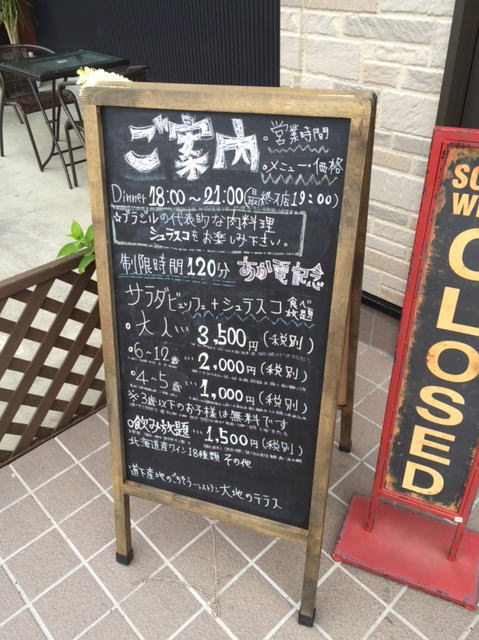 ご案内
・営業時間
・メニュー・価格
Dinner 18:00〜21:00(最終入店19:00)
☆ブラジルの代表的な肉料理
シュラスコをお楽しみ下さい。
制限時間120分
サラダビュッフェ+シュラスコ 食べ放題
・大人… 3,500円(税別)
・6〜12歳… 2,000円(税別)
・4〜5歳… 1,000円(税別)
※3歳以下のお子様は無料です
○飲み放題… 1,500円(税別)
北海道産ワイン18種類 その他
道下産地のごちそうレストラン 大地のテラス
CLOSED